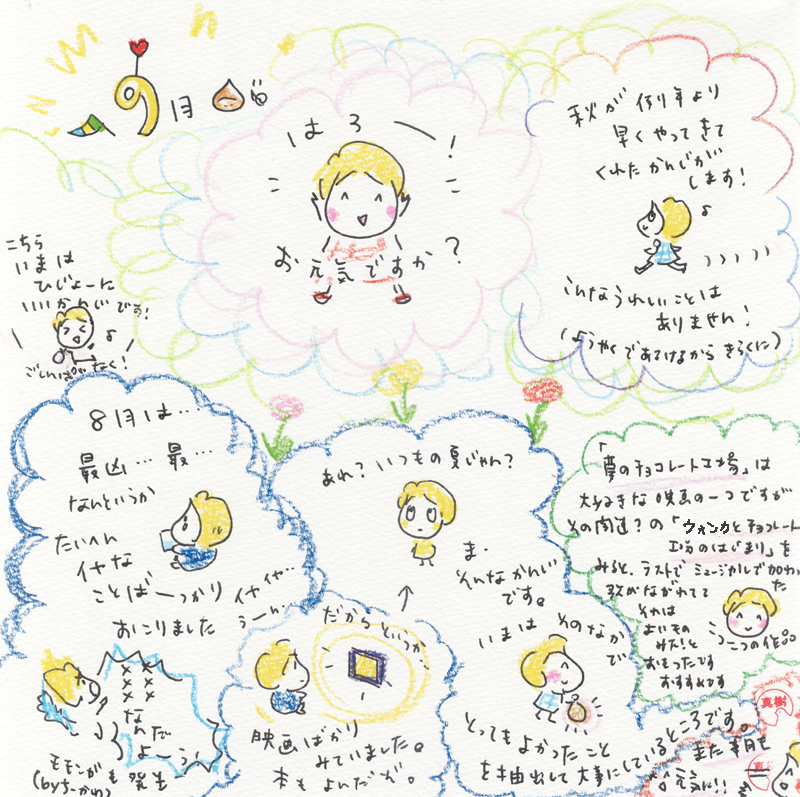 9月
はろー!
お元気ですか?
秋が例年より
早くやってきて
くれたかんじが
します!
こんなうれしいことは
ありません!
(ようやくであるけるからきらくに)
こちら
いまは
ひじょーに
いいかんじです!
ごしんぱいなく!
8月は…
最凶…最…
なんというか
たいへん
イヤな
ことばーっかり
おこりました
イヤイヤ…
うーん…
××××
なんだ
よーっ!
モモンガも発生
(byちーかわ)
だからというか
映画ばかり
みていました。
本もよんだが。
あれ?いつもの夏じゃん?
ま・
そんなかんじ
です。
いまはそのなか
で
とってもよかったこと
を抽出して大事にしているところです。
「夢のチョコレート工場」は
大好きな映画の一つですが
その関連?の「ウォンカとチョコレート
工場のはじまり」を
みると、ラストでミュージカルで加わった
歌がながれてて
それは
よいもの
みた!と
おもったです
おすすめです
二つの作品。
真樹
また来月も
お元気に!!
真